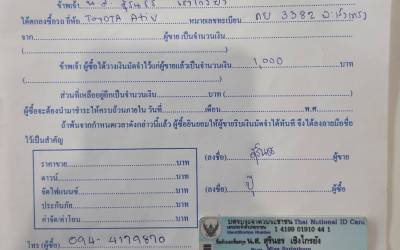 ข้าพเจ้า น.ส. สุรินธร เชิงไกรยัง
ได้ตกลงซื้อรถ ยี่ห้อ TOYOTA Ativ หมายเลขทะเบียน 3382
จาก ผู้ขาย เป็นจำนวนเงิน
ข้าพเจ้า ผู้ซื้อได้วางเงินมัดจำไว้แก่ผู้ขายแล้วเป็นจำนวนเงิน 1,000 บาท
ส่วนที่เหลืออยู่อีกเป็นจำนวนเงิน บาท
ผู้ซื้อจะต้องนำมาชำระให้ครบถ้วนภายใน วันที่ เดือน พ.ศ.
ถ้าพ้นจากกำหนดเวลาดังกล่าวนี้แล้ว ผู้ซื้อยินยอมให้ผู้ขายริบเงินมัดจำได้ทันที จึงได้ลงลายมือชื่อ
ไว้เป็นสำคัญ
ราคาขาย บาท
ดาวน์ บาท
จัดไฟแนนซ์ บาท
ประกันภัย บาท
ค่าจัด/ค่าโอน บาท
(ลงชื่อ) สุรินธร ผู้ขาย
(ลงชื่อ) ผู้ซื้อ
บัตรประจำตัวประชาชน Thai National ID Card
1 4199 01910 44 1
Identification Number
น.ส. สุรินธร เชิงไกรยัง
โทร (ผู้ซื้อ) 094-4179870